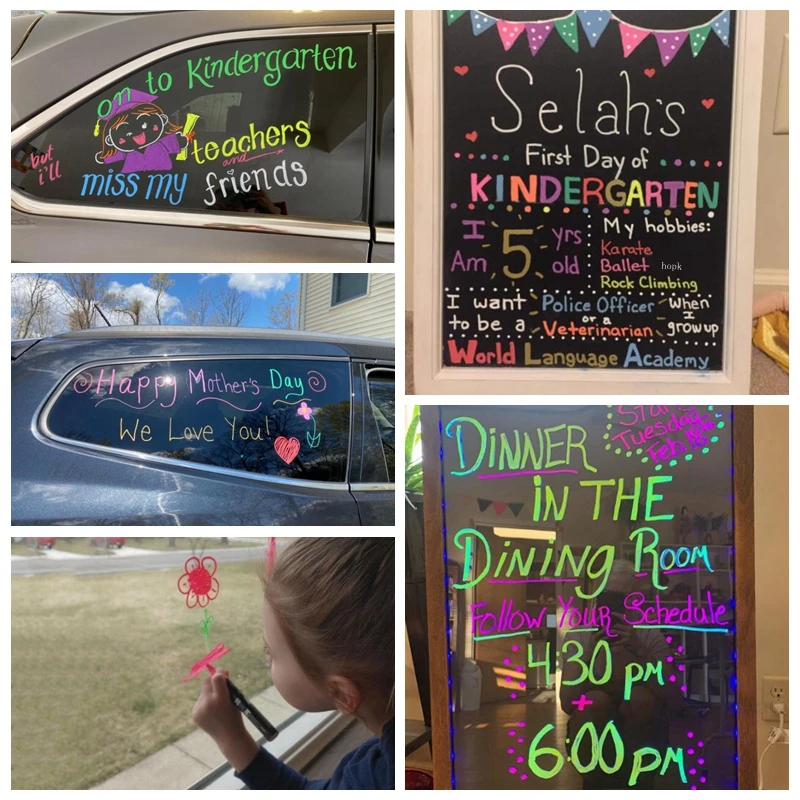 on to Kindergarten
but
i'll
teachers
and
miss my friends
Happy Mother's Day
We Love You!
Selah's
First Day of
KINDERGARTEN
I Am 5 yrs old
My hobbies:
Karate
Ballet hopk
Rock Climbing
I want to be a
Police Officer
or a
Veterinarian
when I grow up
World Language Academy
DINNER
Tuesday
IN THE
DINING ROOM
Follow Your Schedule
4:30 pm
+
6:00 pm